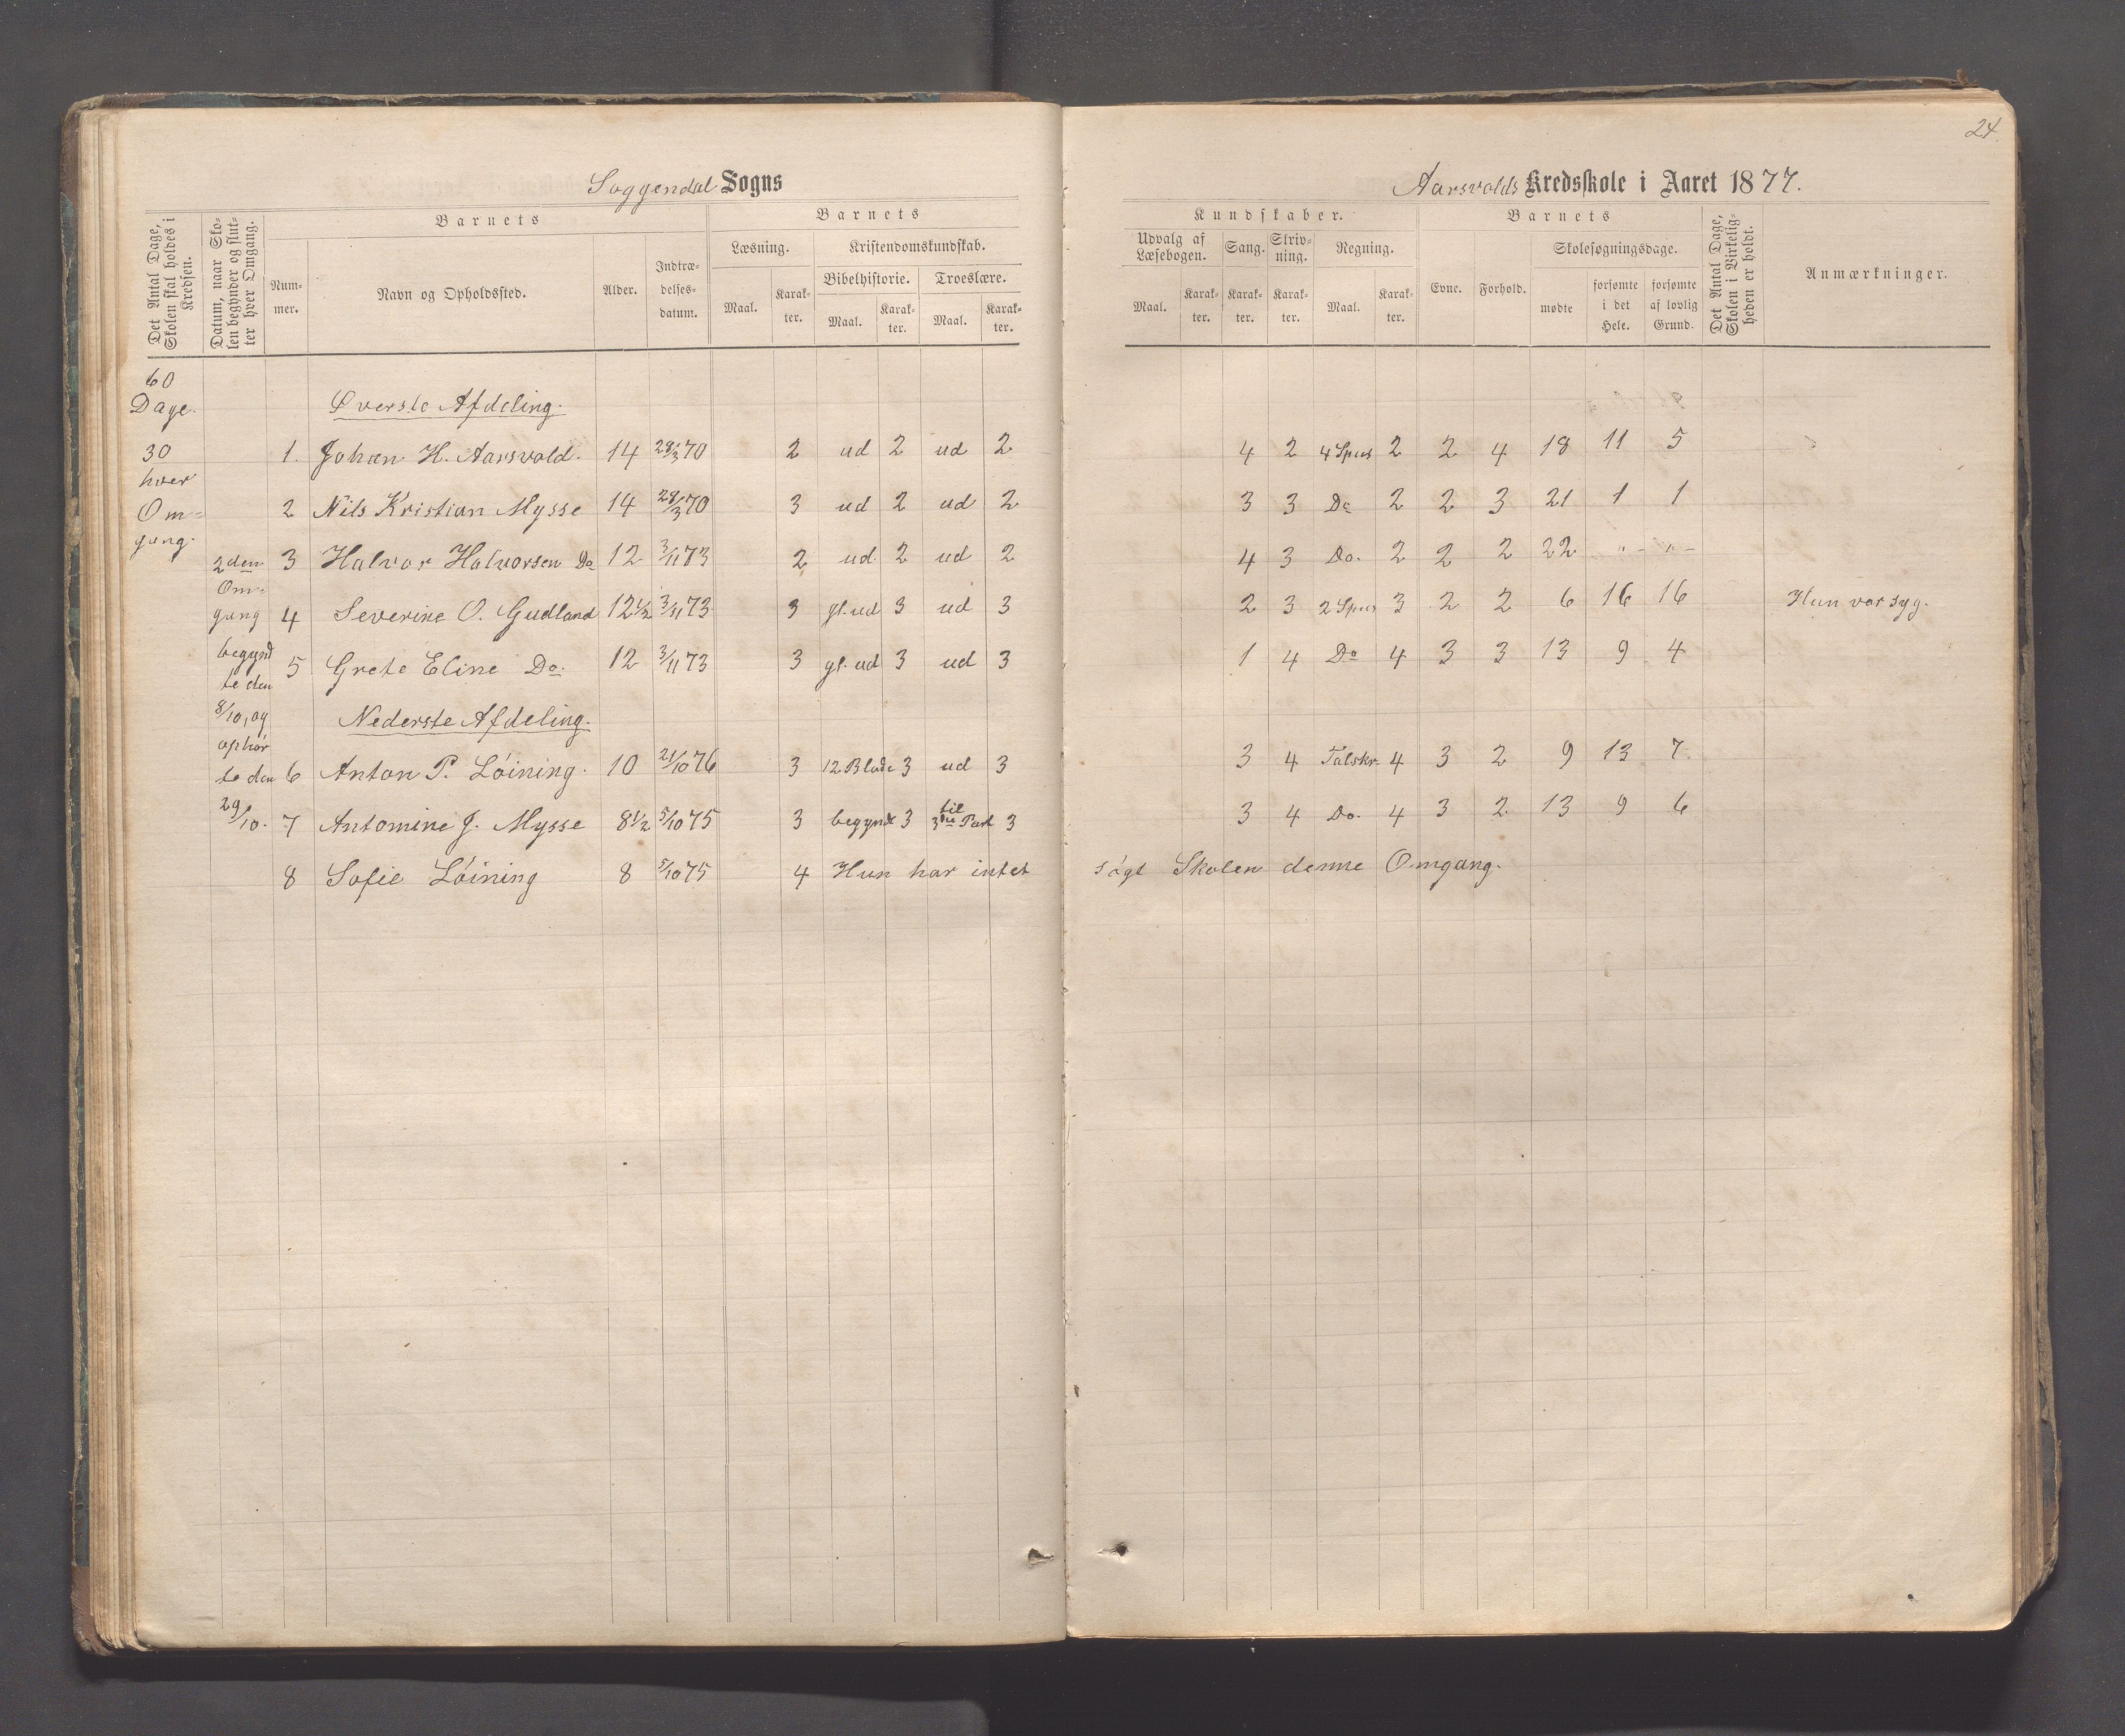 24.
Soggendal Sogns
Aarsvolds Kredsskole i Aaret 1877.
Det Antal Dage, Skolen skal holdes i Kredsen.
Datum, naar Skolen begynder og slutter hver Omgang.
Barnets
Nummer.
Navn og Opholdssted.
Alder.
Indtrædelsesdatum.
Barnets
Læsning.
Maal.
Karakter.
Kristendomskundskab.
Bibelhistorie.
Maal.
Karakter.
Troeslære.
Maal.
Karakter.
Kundskaber.
Udvalg af Læsebogen.
Maal.
Karakter.
Sang.
Karakter.
Skrivning.
Karakter.
Regning.
Maal.
Karakter.
Barnets
Evne.
Forhold.
Skolesøgningsdage.
mødte
forsømte i det Hele.
forsømte af lovlig Grund.
Det Antal Dage, Skolen i Virkeligheden er holdt.
Anmærkninger.
60
Dage.
30
hver
Om=
gang.
2den
Om=
gang
begynd
te den
8/10, og
ophør
te den
29/10.
Øverste Afdeling.
1. Johan H. Aarsvold. 14 28/3 70 2 ud 2 ud 2 4 2 4 Spes 2 2 4 18 11 5
2 Nils Kristian Mysse 14 28/3 70 3 ud 2 ud 2 3 3 Do 2 2 3 21 1 1
3 Halvor Halvorsen Do 12 3/11 73 2 ud. 2 ud 2 4 3 Do. 2 2 2 22 " - " -
4 Severine O. Gudland 12 1/2 3/11 73 3 gl. ud 3 ud 3 2 3 2 Spes 3 2 2 6 16 16 Hun var syg.
5 Grete Eline Do. 12 3/11 73 3 gl. ud 3 ud 3 1 4 Do 4 3 3 13 9 4
Nederste Afdeling.
6 Anton P. Løining. 10 21/10 76 3 12 Blade 3 ud 3 3 4 Talskr. 4 3 2 9 13 7
7 Antomine J. Mysse 8 1/2 5/10 75 3 begyndt 3 til 3die Part 3 3 4 Do. 4 3 2 13 9 6
8 Sofie Løining 8 5/10 75 4 Hun har intet søgt Skolen denne Omgang.